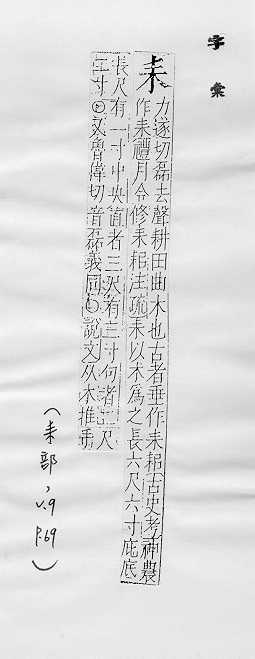 字彙
耒
力遂切磊去聲耕田曲木也古者垂作耒耜古史考神農
作耒禮月令修耒耜注疏耒以木爲之長六尺六寸庇底
長尺有一寸中央直者三尺有三寸者二尺
二寸○又魯偉切音磊義同○說文从木推丰
（耒部，v.9
p.69）